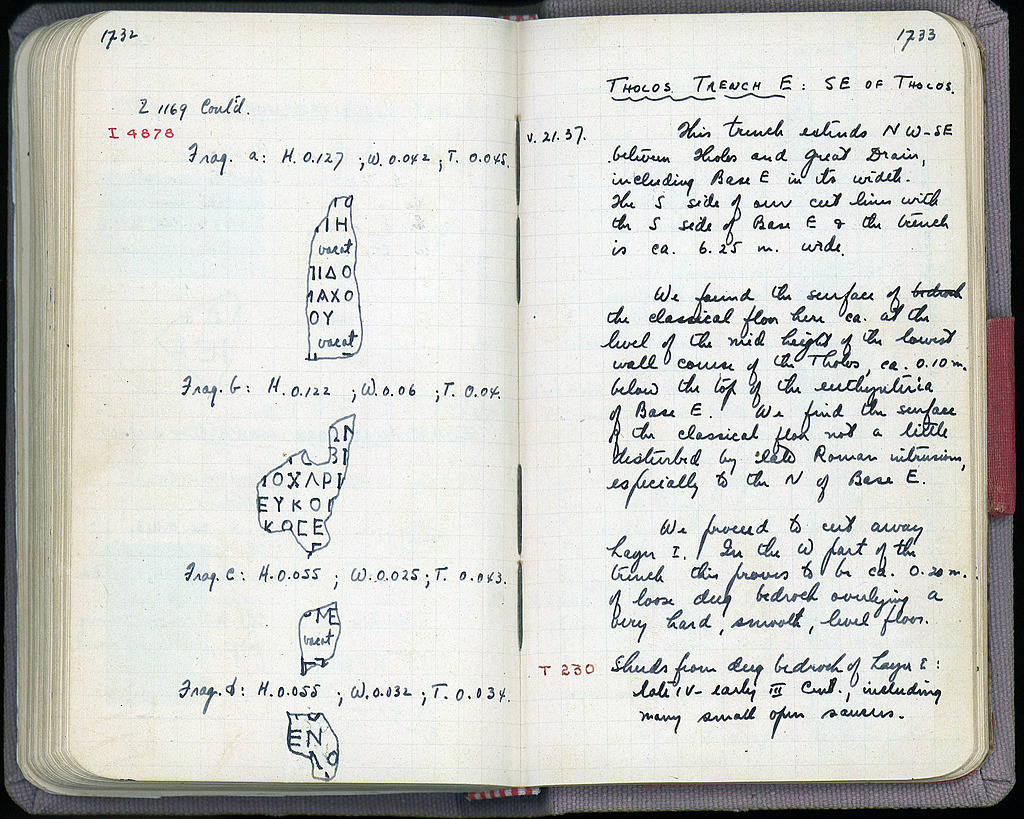 1732
Σ 1169 Cont'd.
I 4878
Frag. a: H. 0.127 ; W. 0.042 ; T. 0.045.
ΙΗ
vacat
ΠΙΔΟ
ΛΑΧΟ
ΟΥ
vacat
Frag. b: H. 0.122 ; W. 0.06 ; T. 0.04.
ΤΟΧΛΡΙ
ΕΥΚΟΙ
ΚΟΣΕ
Frag. c: H. 0.055 ; W. 0.025 ; T. 0.043.
ΜΕ
vacat
Frag. d: H. 0.055 ; W. 0.032 ; T. 0.034.
ΕΝ
1733
THOLOS TRENCH E: SE OF THOLOS.
V. 21. 37. This trench extends NW-SE
between Tholos and Great Drain,
including Base E in its width.
The S side of our cut lines with
the S side of Base E & the trench
is ca. 6.25 m. wide.
We found the surface of bedrock
the classical floor here ca. at the
level of the mid height of the lowest
wall course of the Tholos, ca. 0.10 m.
below the top of the euthynteria
of Base E. We find the surface
of the classical floor not a little
disturbed by late Roman intrusions,
especially to the N of Base E.
We proceed to cut away
Layer I. In the W part of the
trench this proves to be ca. 0.20 m.
of loose dug bedrock overlying a
very hard, smooth, level floor.
T 230 Sherds from dug bedrock of Layer I:
late IV - early III Cent., including
many small open saucers.